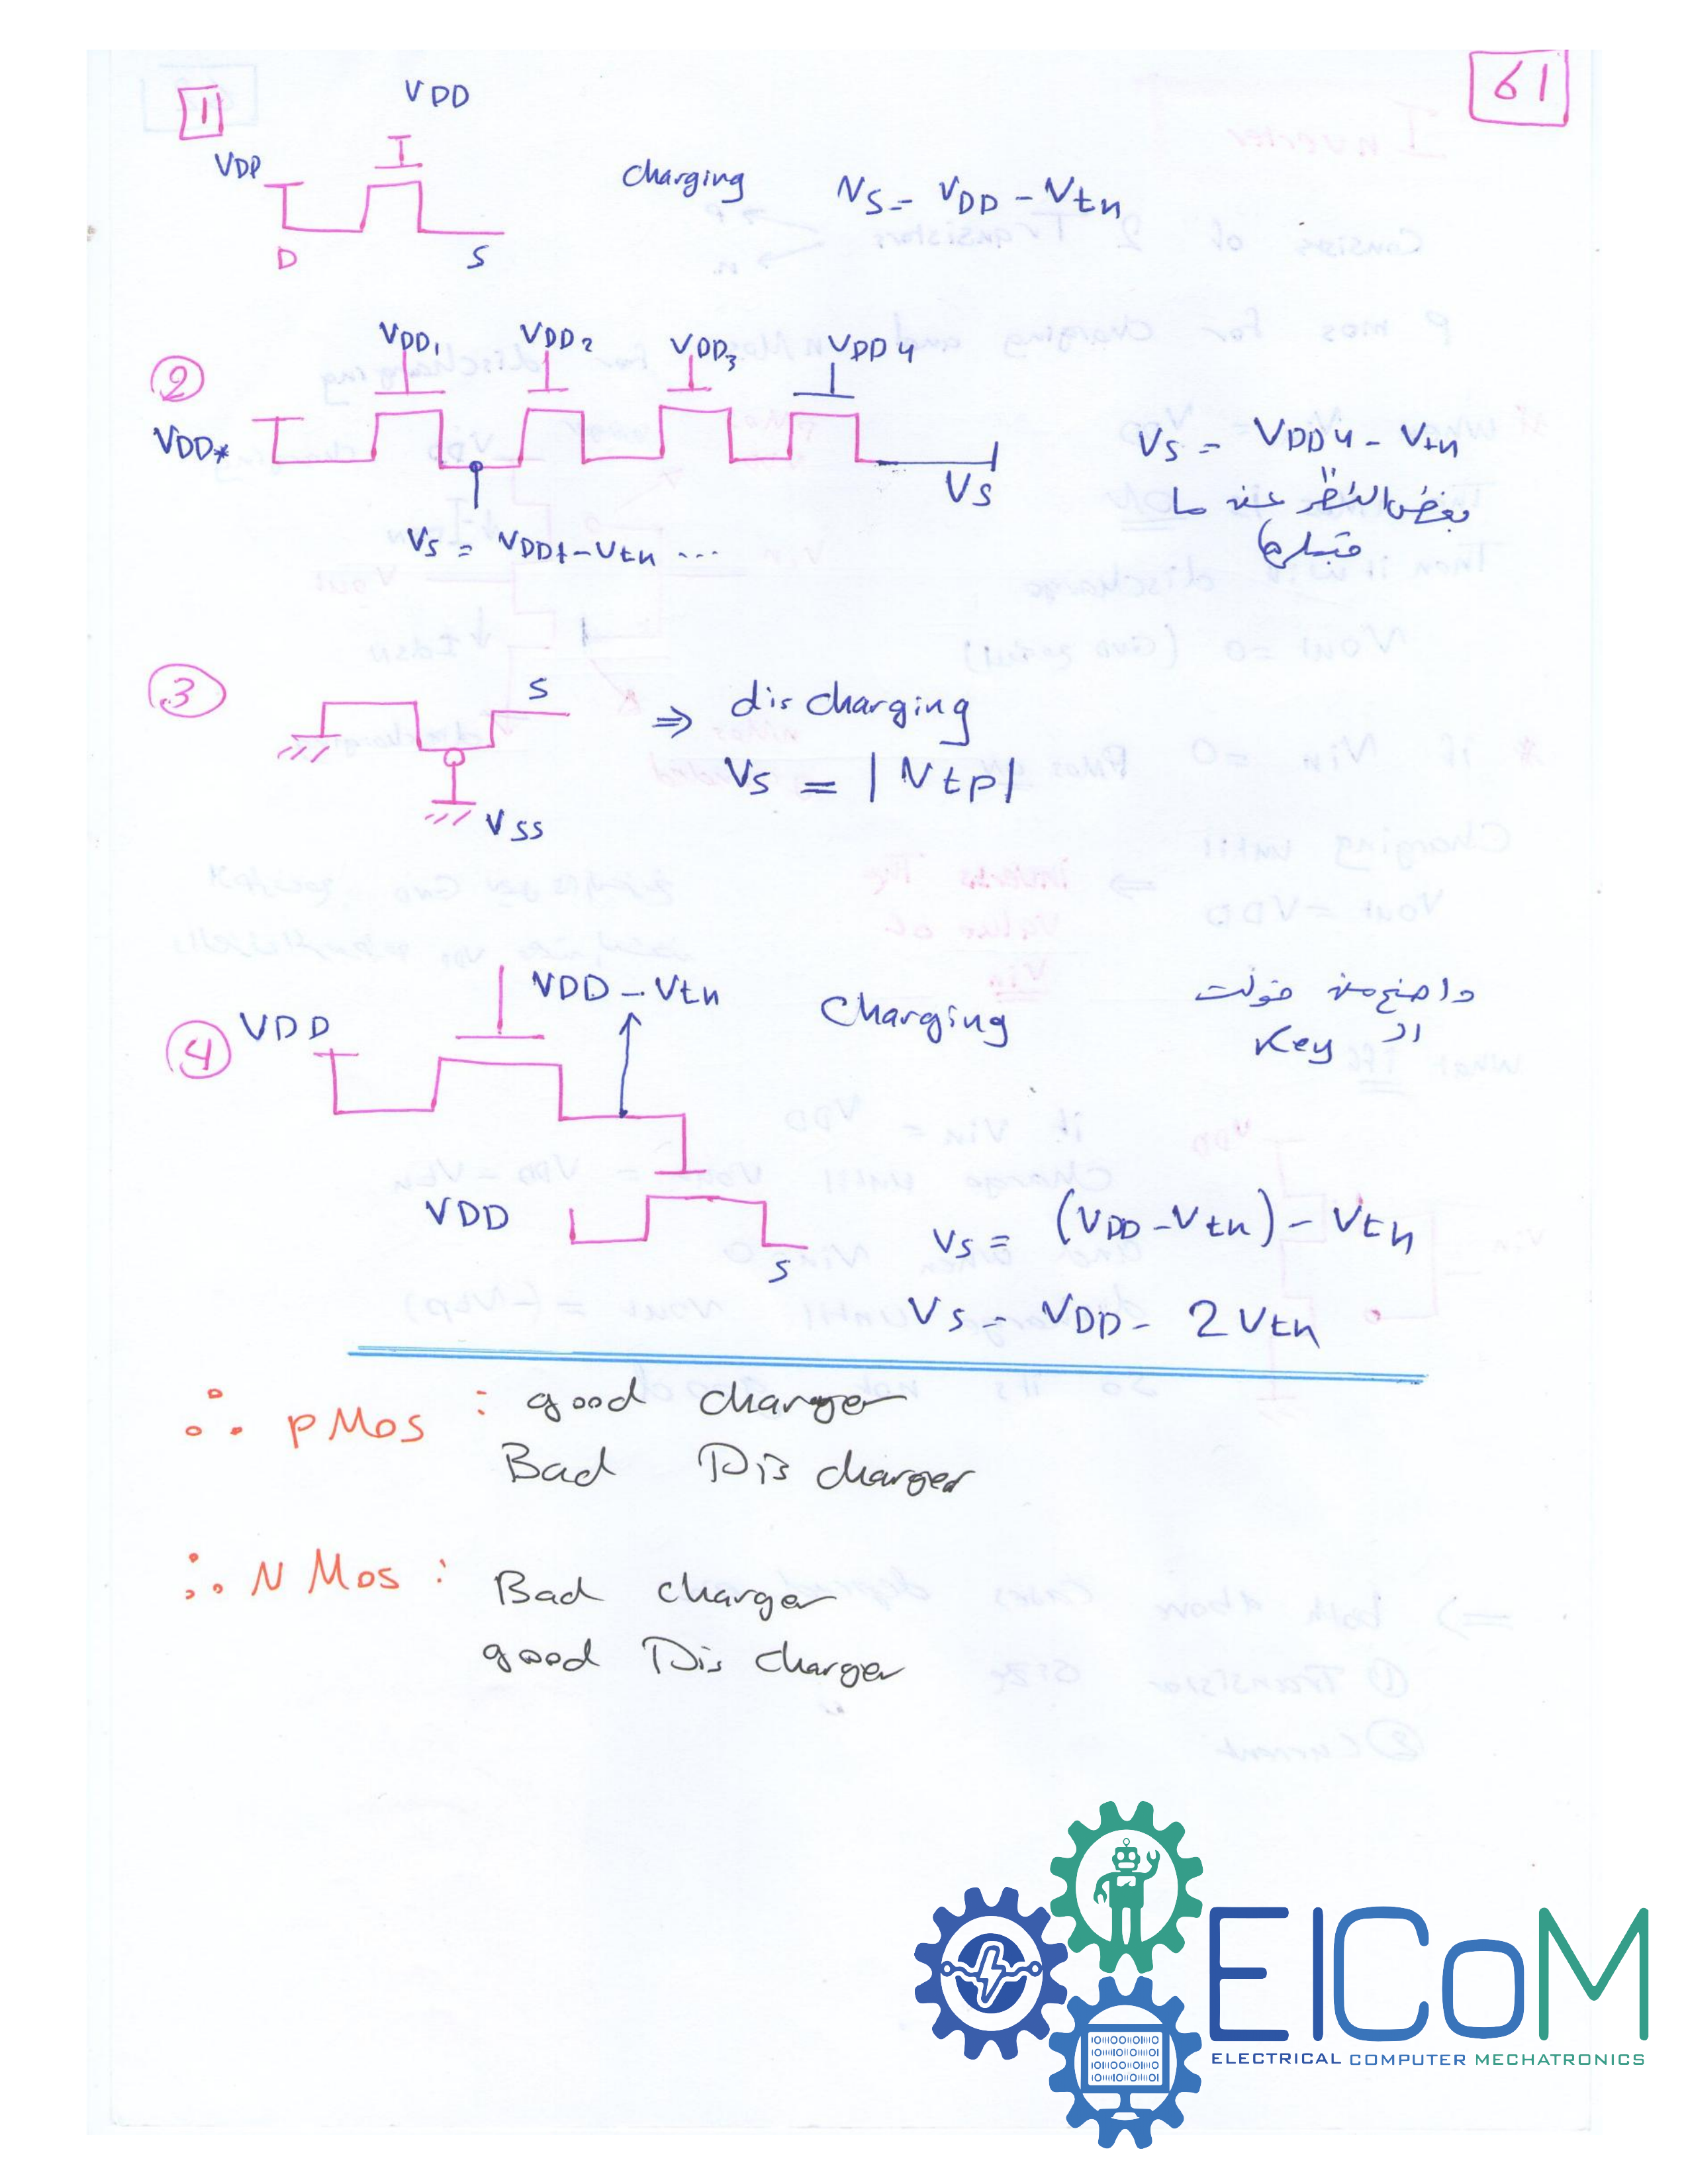 61
1
VDD
VDD
charging VS = VDD - Vtn
D
S
2
VDD1 VDD2 VDD3 VDD4
VDD*
VS
VS = VDD1 - Vtn ...
VS = VDD4 - Vtn
بغض النظر عن ما
قبلها
3
S
⇒ discharging
VS = |Vtp|
VSS
4
VDD
VDD - Vtn
Charging
Key
VDD
S
VS = (VDD - Vtn) - Vtn
VS = VDD - 2Vtn
∴ PMos : good charger
Bad Discharger
∴ NMos : Bad charger
good Discharger
EICoM
ELECTRICAL COMPUTER MECHATRONICS